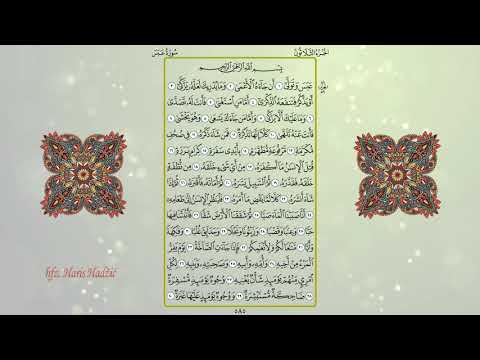 الجزء الثلاثون
سورة عبس
بِسْمِ اللَّهِ الرَّحْمَٰنِ الرَّحِيمِ
عَبَسَ وَتَوَلَّىٰ ١ أَن جَاءَهُ الْأَعْمَىٰ ٢ وَمَا يُدْرِيكَ لَعَلَّهُ يَزَّكَّىٰ ٣
أَوْ يَذَّكَّرُ فَتَنفَعَهُ الذِّكْرَىٰ ٤ أَمَّا مَنِ اسْتَغْنَىٰ ٥ فَأَنتَ لَهُ تَصَدَّىٰ ٦
وَمَا عَلَيْكَ أَلَّا يَزَّكَّىٰ ٧ وَأَمَّا مَن جَاءَكَ يَسْعَىٰ ٨ وَهُوَ يَخْشَىٰ ٩
فَأَنتَ عَنْهُ تَلَهَّىٰ ١٠ كَلَّا إِنَّهَا تَذْكِرَةٌ ١١ فَمَن شَاءَ ذَكَرَهُ ١٢ فِي صُحُفٍ
مُّكَرَّمَةٍ ١٣ مَّرْفُوعَةٍ مُّطَهَّرَةٍ ١٤ بِأَيْدِي سَفَرَةٍ ١٥ كِرَامٍ بَرَرَةٍ ١٦
قُتِلَ الْإِنسَٰنُ مَا أَكْفَرَهُ ١٧ مِنْ أَيِّ شَيْءٍ خَلَقَهُ ١٨ مِن نُّطْفَةٍ
خَلَقَهُ فَقَدَّرَهُ ١٩ ثُمَّ السَّبِيلَ يَسَّرَهُ ٢٠ ثُمَّ أَمَاتَهُ فَأَقْبَرَهُ ٢١ ثُمَّ إِذَا
شَاءَ أَنشَرَهُ ٢٢ كَلَّا لَمَّا يَقْضِ مَا أَمَرَهُ ٢٣ فَلْيَنظُرِ الْإِنسَٰنُ إِلَىٰ طَعَامِهِ ٢٤
أَنَّا صَبَبْنَا الْمَاءَ صَبًّا ٢٥ ثُمَّ شَقَقْنَا الْأَرْضَ شَقًّا ٢٦ فَأَنبَتْنَا فِيهَا
حَبًّا ٢٧ وَعِنَبًا وَقَضْبًا ٢٨ وَزَيْتُونًا وَنَخْلًا ٢٩ وَحَدَائِقَ غُلْبًا ٣٠ وَفَٰكِهَةً
وَأَبًّا ٣١ مَّتَٰعًا لَّكُمْ وَلِأَنْعَٰمِكُمْ ٣٢ فَإِذَا جَاءَتِ الصَّاخَّةُ ٣٣ يَوْمَ يَفِرُّ
الْمَرْءُ مِنْ أَخِيهِ ٣٤ وَأُمِّهِ وَأَبِيهِ ٣٥ وَصَٰحِبَتِهِ وَبَنِيهِ ٣٦ لِكُلِّ
امْرِئٍ مِّنْهُمْ يَوْمَئِذٍ شَأْنٌ يُغْنِيهِ ٣٧ وُجُوهٌ يَوْمَئِذٍ مُّسْفِرَةٌ ٣٨
ضَاحِكَةٌ مُّسْتَبْشِرَةٌ ٣٩ وَوُجُوهٌ يَوْمَئِذٍ عَلَيْهَا غَبَرَةٌ ٤٠
٥٨٥
hfz. Haris Hadžić